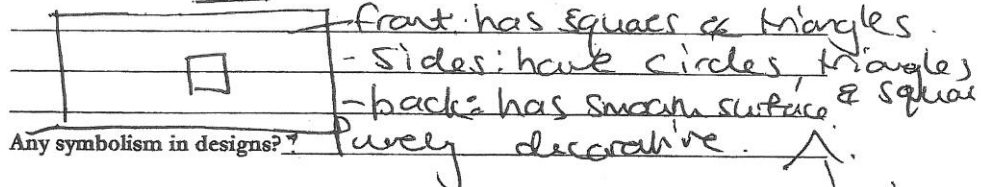 - front. has squaes & triangles.
- Sides: have circles, triangles & squae
- back: has smooth surface
Any symbolism in designs? Purely decorative.